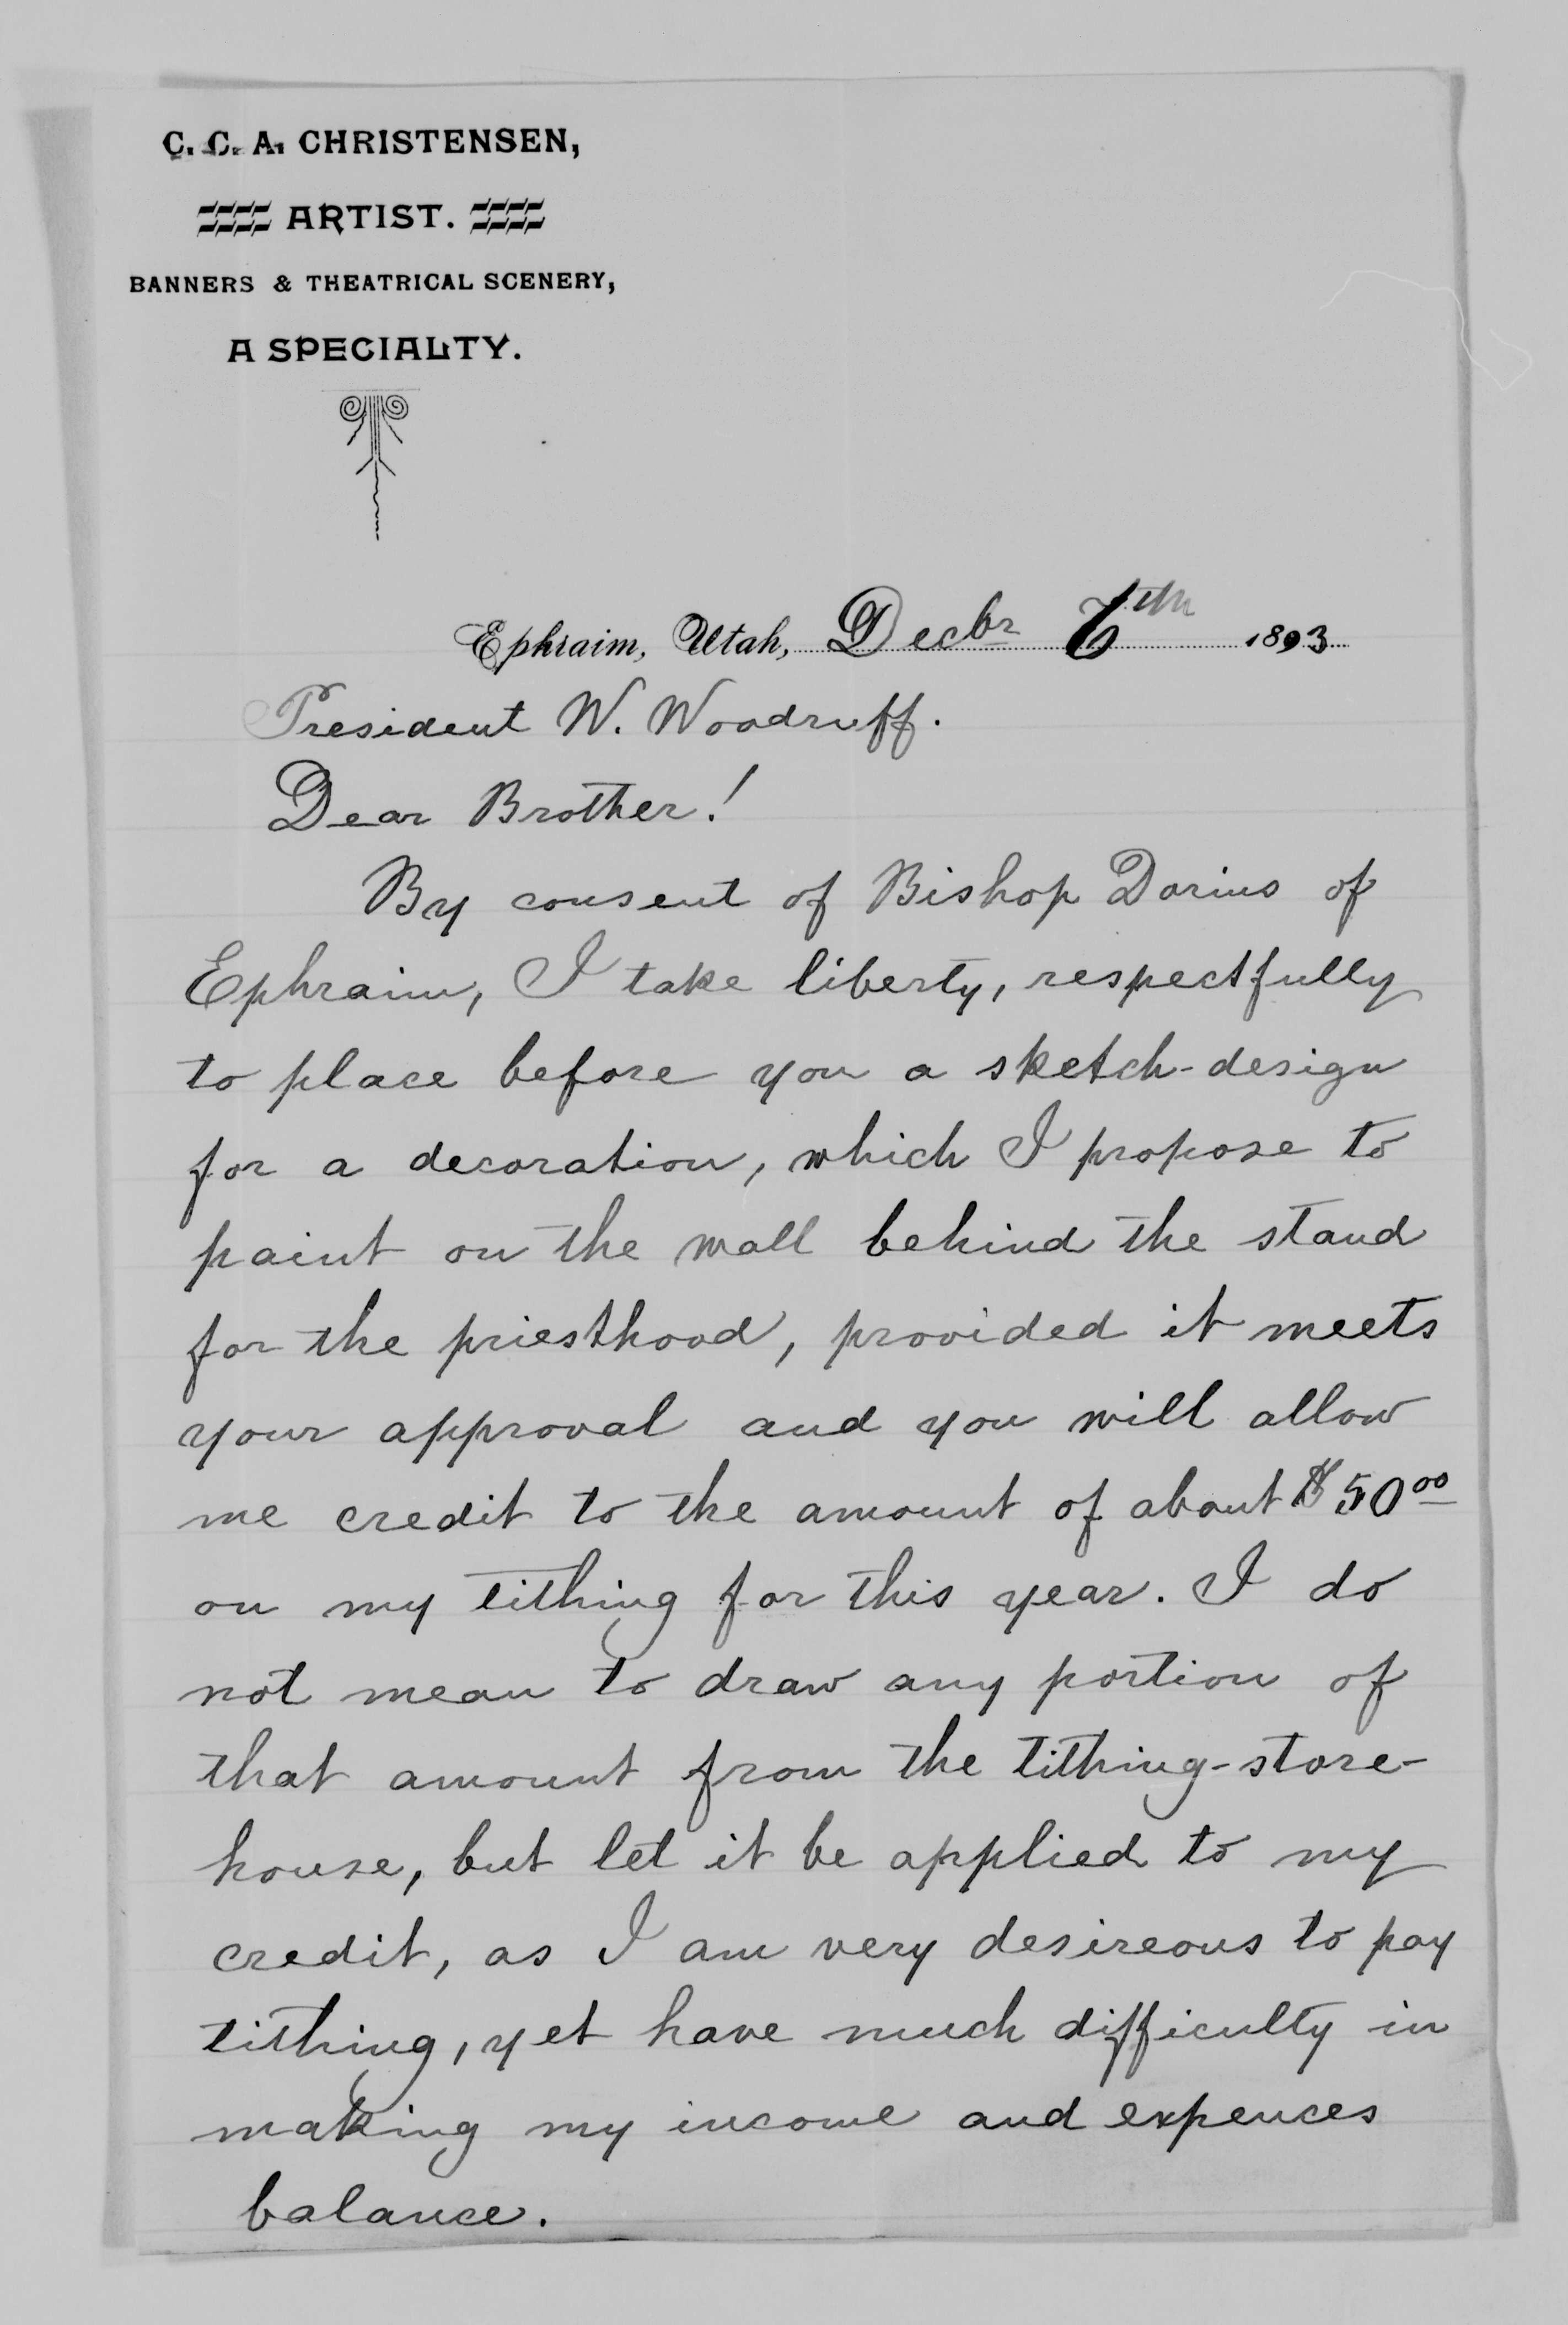 C. C. A. CHRISTENSEN,
ARTIST.
BANNERS & THEATRICAL SCENERY,
A SPECIALTY.
Ephraim, Utah, Decbr 6th 1893
President W. Woodruff.
Dear Brother!
By consent of Bishop Dorius of
Ephraim, I take liberty, respectfully
to place before you a sketch-design
for a decoration, which I propose to
paint on the wall behind the stand
for the priesthood, provided it meets
your approval and you will allow
me credit to the amount of about $50 00
on my tithing for this year. I do
not mean to draw any portion of
that amount from the tithing-store-
house, but let it be applied to my
credit, as I am very desireous to pay
tithing, yet have much difficulty in
making my income and expences
balance.